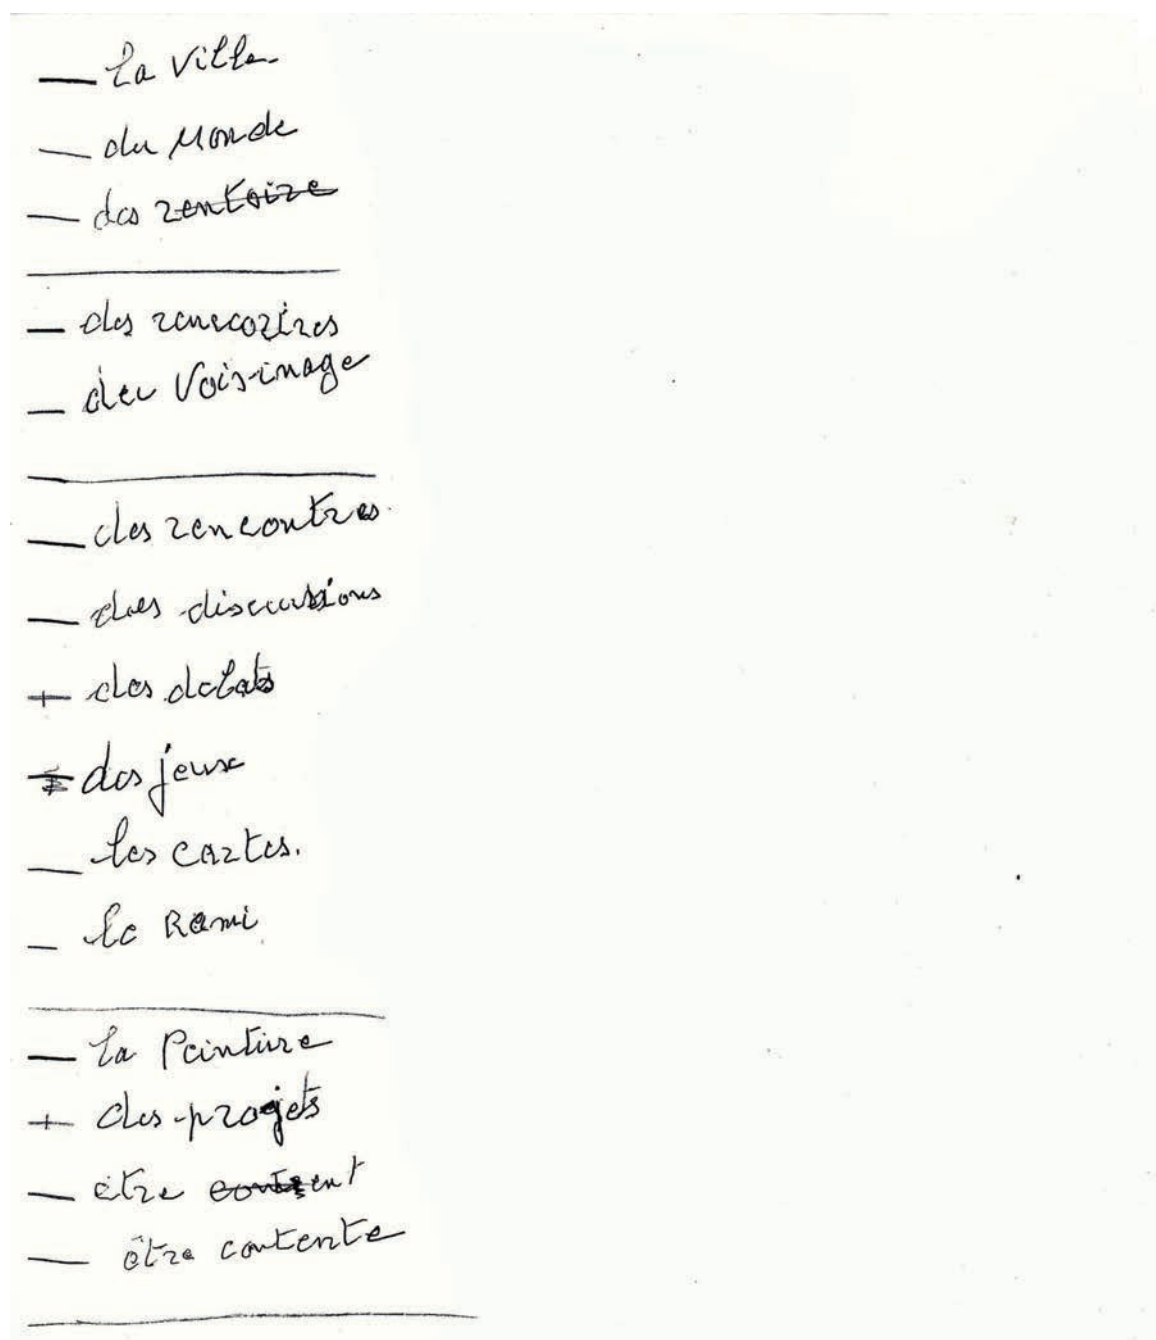 — la ville
— du Monde
— des rentoire
— des renecorires
— du Vois-inage
— des rencontres
— des discussions
+ des debats
— des jeux
— les cartes.
— le Rami
— la Peinture
+ des projets
— être content
— être contente